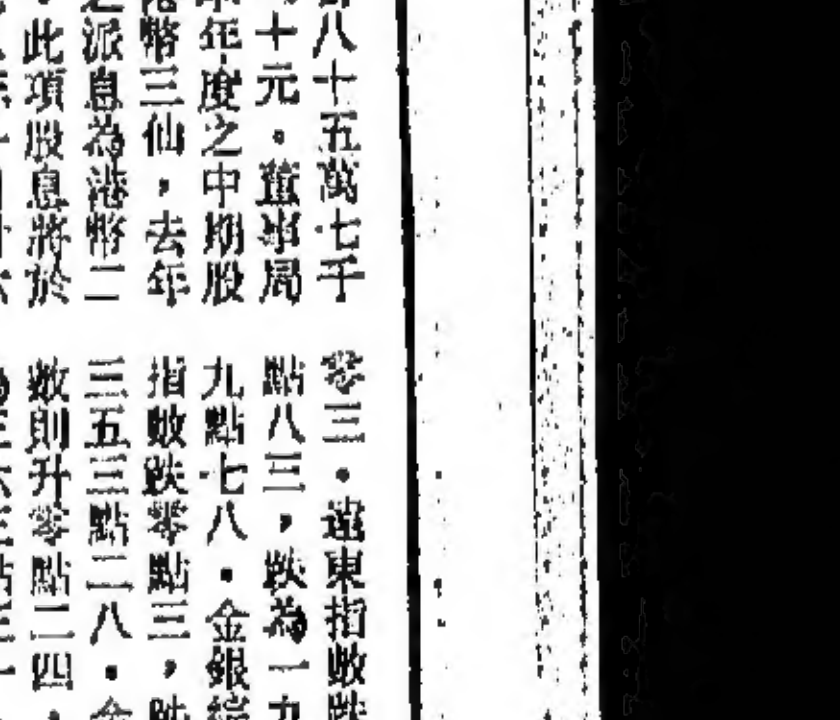 八十五萬七千
十元。董事局
年度之中期股
幣三仙，去年
派息為港幣二
此項股息將於
零三。遠東指數跌
點八三，跌為一九
九點七八。金銀綜
指數跌零點三，跌
三五三點二八。金
數則升零點二四。